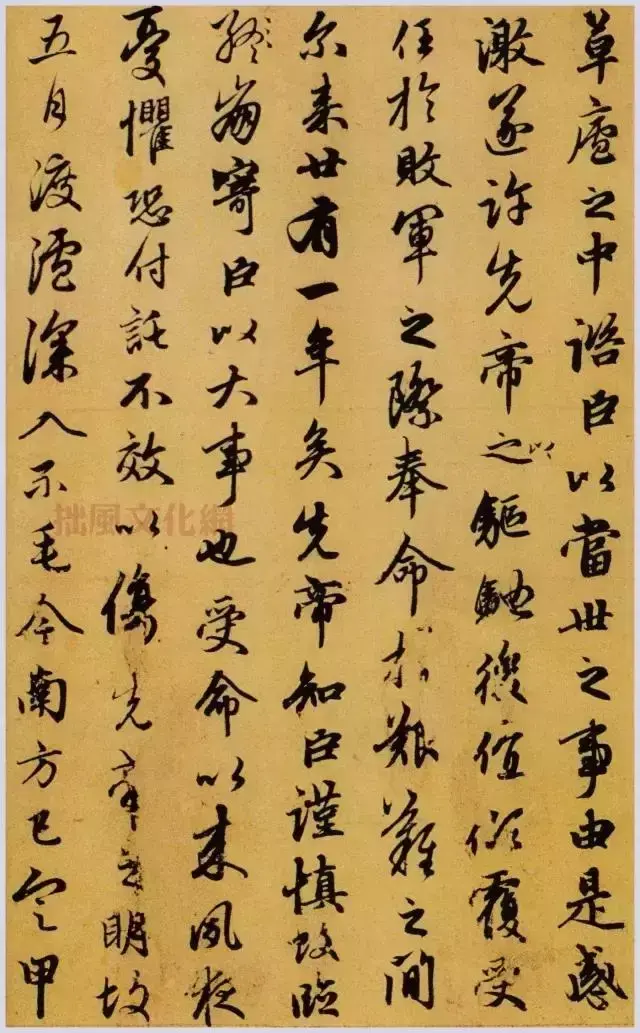 草廬之中諮臣以當世之事由是感
激遂許先帝之以驅馳後值傾覆受
任於敗軍之際奉命於艱難之間
尔来廿有一年矣先帝知臣謹慎故臨
崩寄臣以大事也受命以来夙夜
憂懼恐付託不效以傷先帝之明故
五月渡瀘深入不毛今南方已定甲
拙風文化網